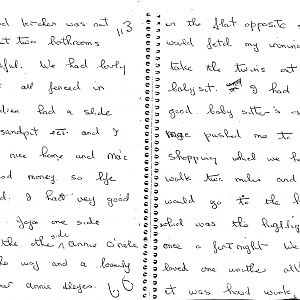 kitchen was not 113
two bathrooms
We had lovely
all fenced in
had a slide
sandpit and I
nice home and Mac
good money so life
I had very good
Joyce one side
the other side Annie O'neill
way and a lovely
Annie
in the flat opposite
would fetch my
take the twins out
babysit. I had
good baby sitter's
pushed me to
shopping when we
walk two miles and
would go to the
that was the highlig
once a fortnight We
loved one another all
it was hard work